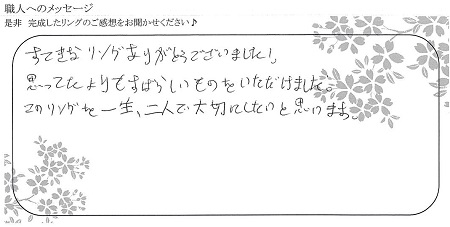 職人へのメッセージ
是非 完成したリングのご感想をお聞かせください♪
すてきな リングありがとうございました!
思ってたよりもすばらしいものをいただけました。
このリングを一生、二人で大切にしたいと思います。